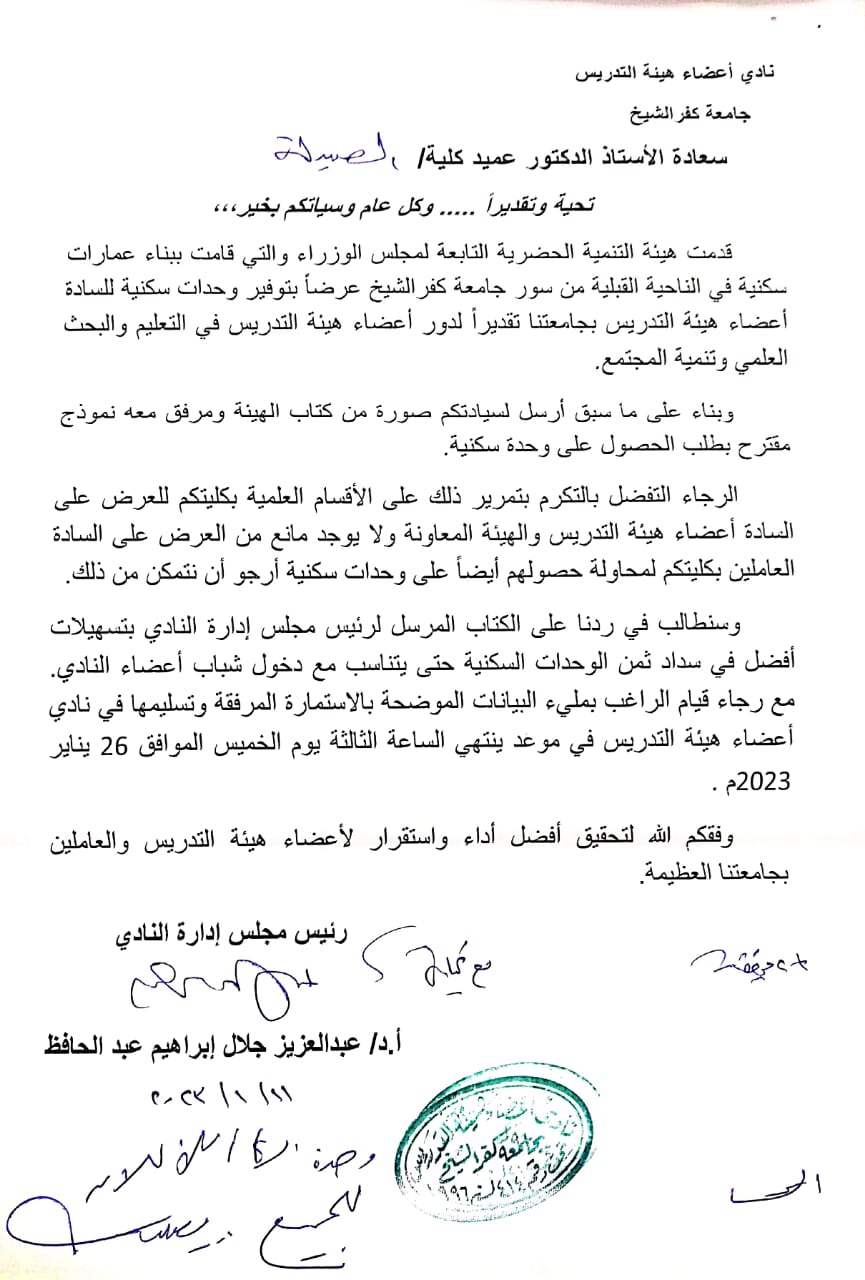 نادي أعضاء هيئة التدريس
جامعة كفر الشيخ
سعادة الأستاذ الدكتور عميد كلية/ الصيدلة
تحية وتقديراً ..... وكل عام وسياتكم بخير،،،
قدمت هيئة التنمية الحضرية التابعة لمجلس الوزراء والتي قامت ببناء عمارات
سكنية في الناحية القبلية من سور جامعة كفر الشيخ عرضاً بتوفير وحدات سكنية للسادة
أعضاء هيئة التدريس بجامعتنا تقديراً لدور أعضاء هيئة التدريس في التعليم والبحث
العلمي وتنمية المجتمع.
وبناء على ما سبق أرسل لسيادتكم صورة من كتاب الهيئة ومرفق معه نموذج
مقترح بطلب الحصول على وحدة سكنية.
الرجاء التفضل بالتكرم بتمرير ذلك على الأقسام العلمية بكليتكم للعرض على
السادة أعضاء هيئة التدريس والهيئة المعاونة ولا يوجد مانع من العرض على السادة
العاملين بكليتكم لمحاولة حصولهم أيضاً على وحدات سكنية أرجو أن نتمكن من ذلك.
وسنطالب في ردنا على الكتاب المرسل لرئيس مجلس إدارة النادي بتسهيلات
أفضل في سداد ثمن الوحدات السكنية حتى يتناسب مع دخول شباب أعضاء النادي.
مع رجاء قيام الراغب بمليء البيانات الموضحة بالاستمارة المرفقة وتسليمها في نادي
أعضاء هيئة التدريس في موعد ينتهي الساعة الثالثة يوم الخميس الموافق 26 يناير
2023م .
وفقكم الله لتحقيق أفضل أداء واستقرار لأعضاء هيئة التدريس والعاملين
بجامعتنا العظيمة.
رئيس مجلس إدارة النادي
أ.د/ عبدالعزيز جلال إبراهيم عبد الحافظ
وحدة
للجميع
نادى أعضاء هيئة التدريس
بجامعة كفر الشيخ